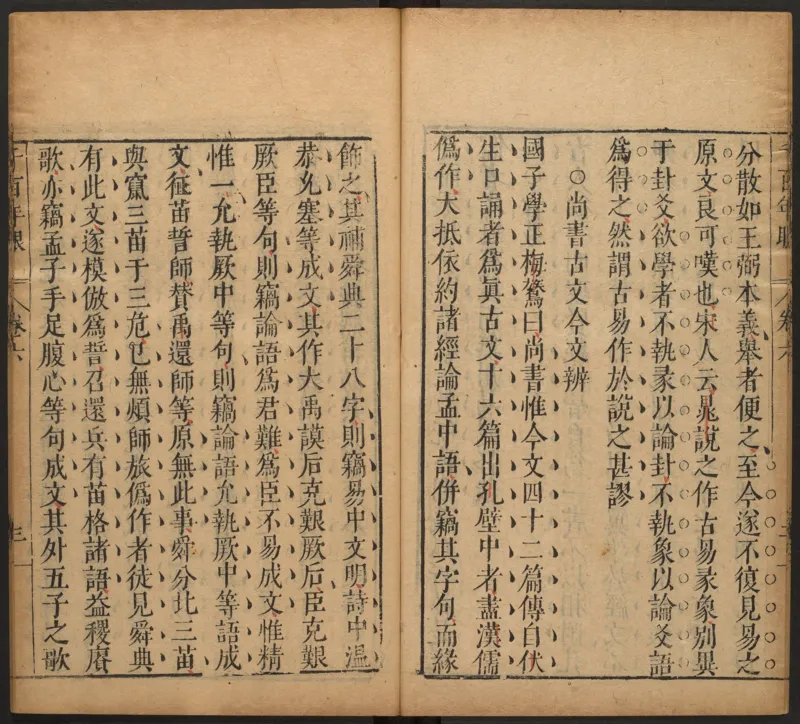 分散如王弼本義舉者便之至今遂不復見易之
原文良可嘆也宋人云晁說之作古易彖象別異
于卦爻欲學者不執彖以論卦不執象以論爻語
爲得之然謂古易作於說之甚謬
○尚書古文今文辨
國子學正梅鷟曰尚書惟今文四十二篇傳自伏
生口誦者爲眞古文十六篇出孔壁中者盡漢儒
僞作大抵依約諸經論孟中語併竊其字句而緣
飾之其補舜典二十八字則竊易中文明詩中溫
恭允塞等成文其作大禹謨后克艱厥后臣克艱
厥臣等句則竊論語爲君難爲臣不易成文惟精
惟一允執厥中等句則竊論語允執厥中等語成
文征苗誓師贊禹還師等原無此事舜分北三苗
與竄三苗于三危已無煩師旅僞作者徒見舜典
有此文遂模倣爲誓召還兵有苗格諸語益稷賡
歌亦竊孟子手足腹心等句成文其外五子之歌
千百年眼
卷六
三
千百年眼
卷六